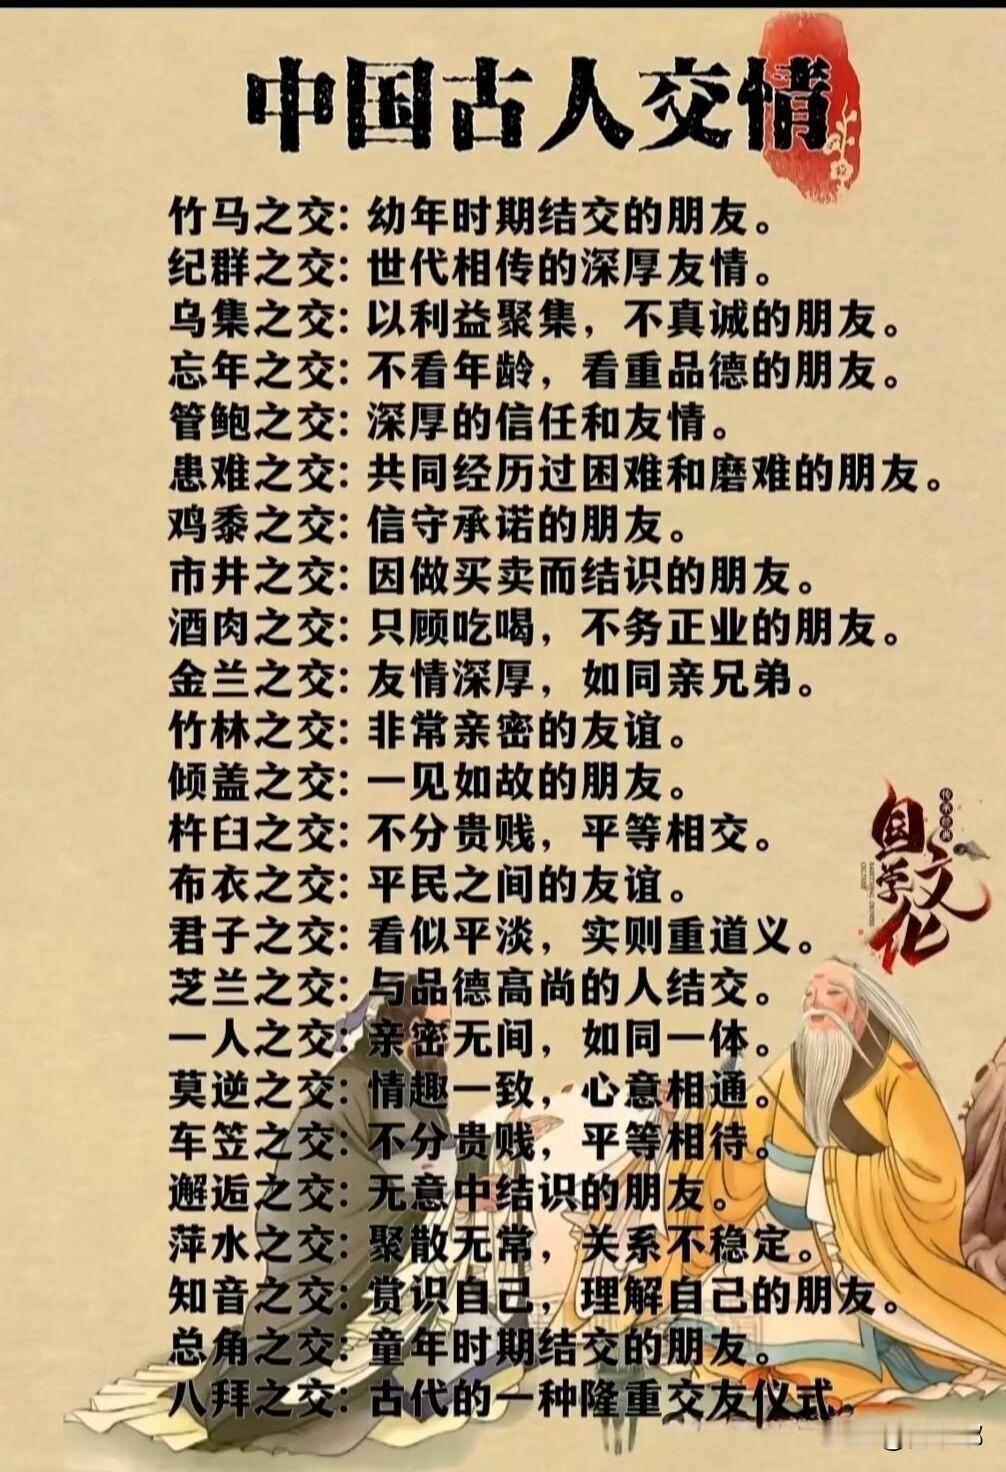 中国古人交情
竹马之交：幼年时期结交的朋友。
纪群之交：世代相传的深厚友情。
乌集之交：以利益聚集，不真诚的朋友。
忘年之交：不看年龄，看重品德的朋友。
管鲍之交：深厚的信任和友情。
患难之交：共同经历过困难和磨难的朋友。
鸡黍之交：信守承诺的朋友。
市井之交：因做买卖而结识的朋友。
酒肉之交：只顾吃喝，不务正业的朋友。
金兰之交：友情深厚，如同亲兄弟。
竹林之交：非常亲密的友谊。
倾盖之交：一见如故的朋友。
杵臼之交：不分贵贱，平等相交。
布衣之交：平民之间的友谊。
君子之交：看似平淡，实则重道义。
芝兰之交：与品德高尚的人结交。
一人之交：亲密无间，如同一体。
莫逆之交：情趣一致，心意相通。
车笠之交：不分贵贱，平等相待。
邂逅之交：无意中结识的朋友。
萍水之交：聚散无常，关系不稳定。
知音之交：赏识自己，理解自己的朋友。
总角之交：童年时期结交的朋友。
八拜之交：古代的一种隆重交友仪式。
国学文化
传承经典